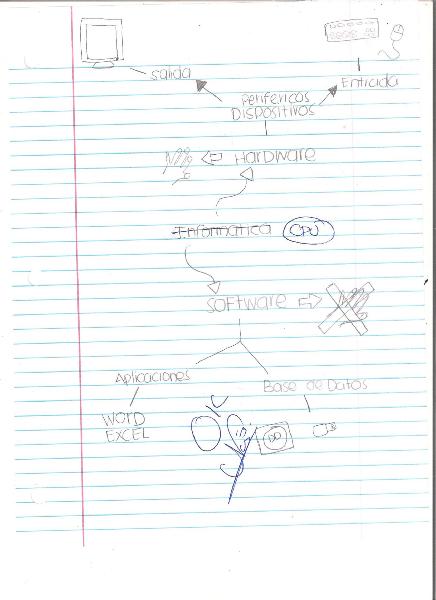 salida
Entrada
Perifericos
DISPOSITIVOS
HARDWARE
Informatica CPU
SOFTWARE
Aplicaciones
Base de Datos
WORD
EXCEL
DD